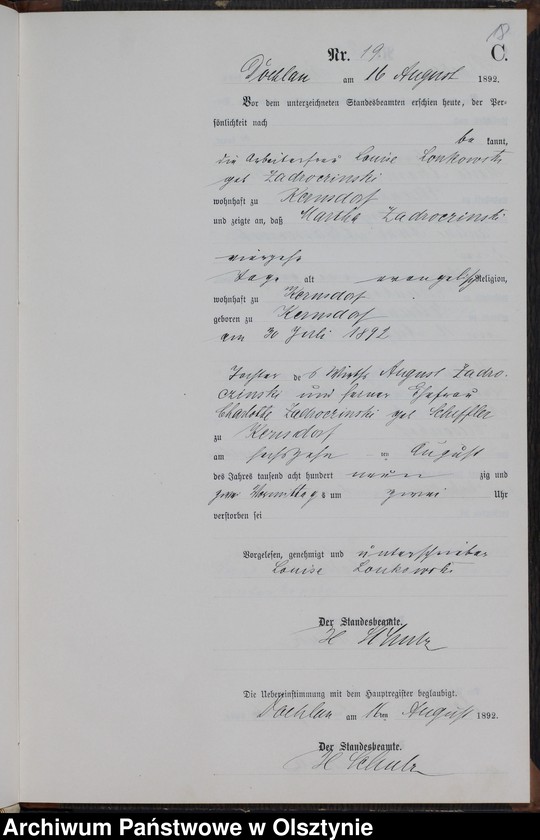 18
Nr. 19. C.
Döhlau am 16 August 1892.
Vor dem unterzeichneten Standesbeamten erschien heute, der Per-
sönlichkeit nach
be kannt,
die Arbeiterfrau Louise Lonkowski
geb Zadroczinski
wohnhaft zu Kernsdorf
und zeigte an, daß Martha Zadroczinski
vierzehn
Tage alt evangelischer Religion,
wohnhaft zu Kernsdorf
geboren zu Kernsdorf
am 30 Juli 1892
Tochter des Wirths August Zadro-
czinski und seiner Ehefrau
Charlotte Zadroczinski geb Scheffler
zu Kernsdorf
am sechszehn ten August
des Jahres tausend acht hundert neun zig und
zwei Vormittags um zwei Uhr
verstorben sei
Vorgelesen, genehmigt und unterschrieben
Louise Lonkowski
Der Standesbeamte.
H Schulz
Die Uebereinstimmung mit dem Hauptregister beglaubigt.
Döhlau am 16ten August 1892.
Der Standesbeamte.
H Schulz
Archiwum Państwowe w Olsztynie